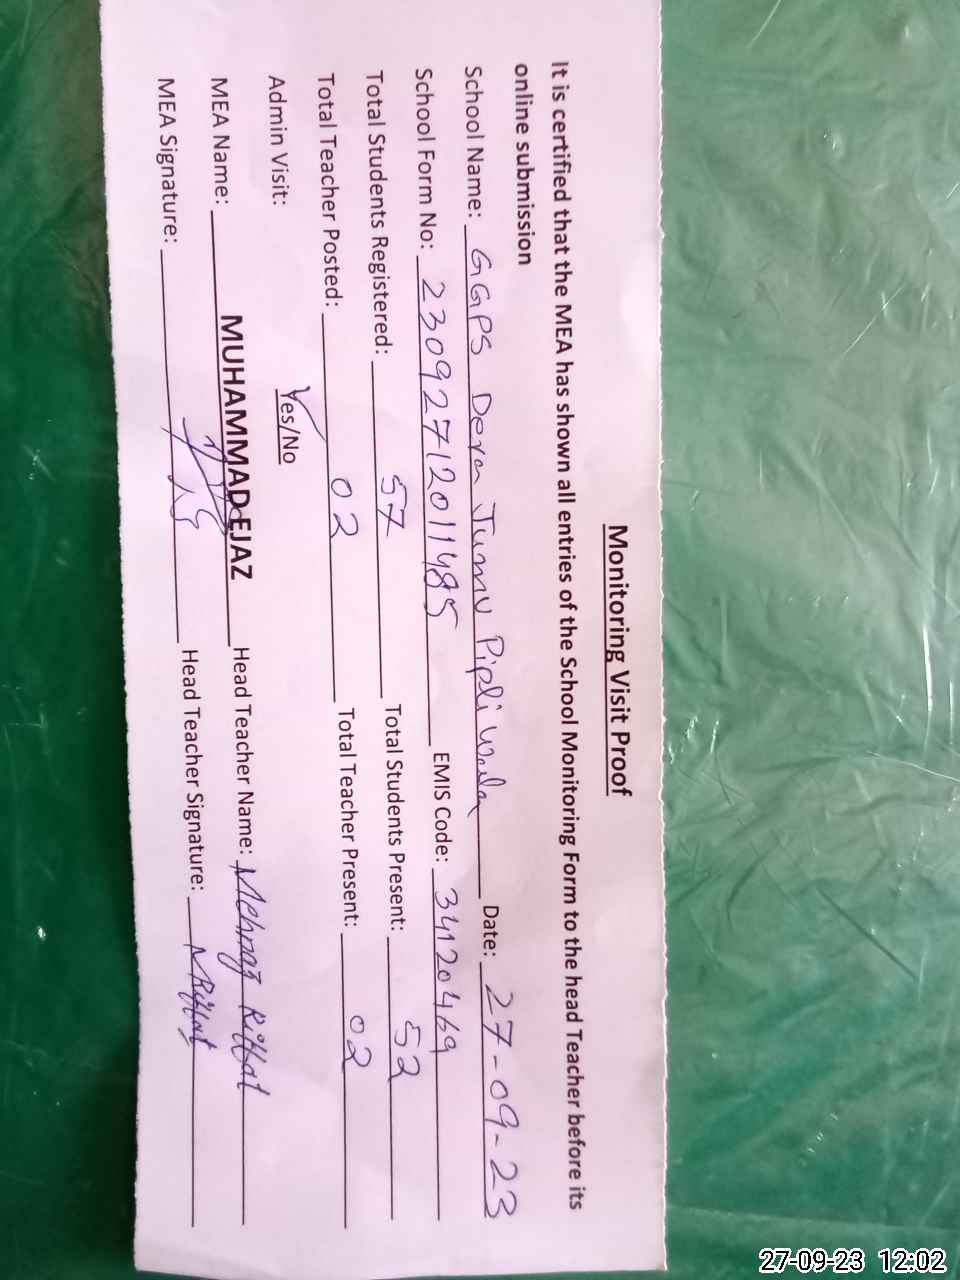 Monitoring Visit Proof
It is certified that the MEA has shown all entries of the School Monitoring Form to the head Teacher before its
online submission
School Name: GGPS Dera Jumu Pipli Wala Date: 27-09-23
School Form No: 23092712011485 EMIS Code: 34120469
Total Students Registered: 57 Total Students Present: 52
Total Teacher Posted: 02 Total Teacher Present: 02
Admin Visit: Yes/No
MEA Name: MUHAMMAD EJAZ Head Teacher Name: Mehnaz Riffat
MEA Signature: Head Teacher Signature: MRiffat
27-09-23 12:02